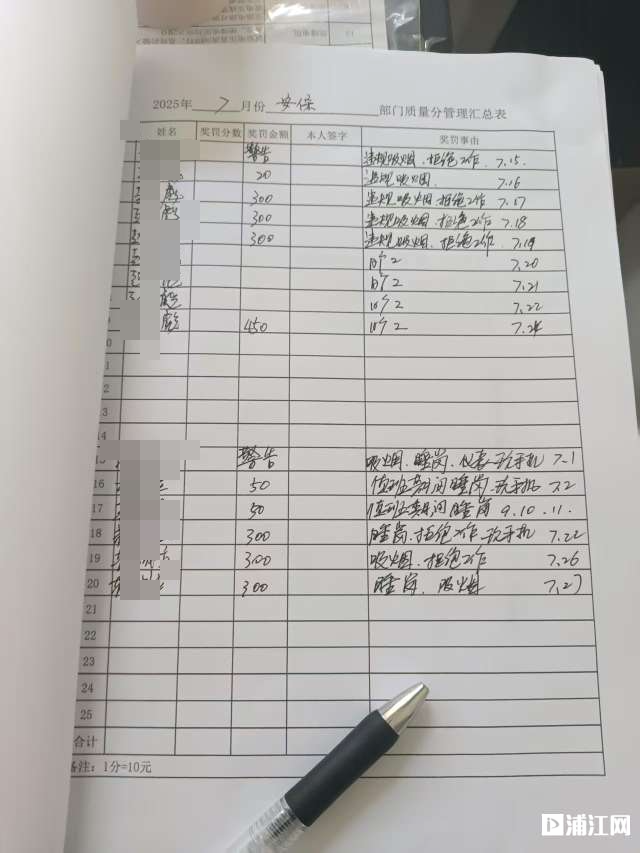 2025年 7 月份 安保 部门质量分管理汇总表
姓名 奖罚分数 奖罚金额 本人签字 奖罚事由
警告 违规吸烟、拒绝工作 7.15.
20 违规吸烟. 7.16
彪 300 违规吸烟.拒绝工作 7.17
彪 300 违规吸烟、拒绝工作 7.18
300 违规吸烟、拒绝工作 7.19
旷工 7.20
旷工 7.21
彪 旷工 7.22
彪 450 旷工 7.24
0
11
12
13
14
15 警告 吸烟、睡岗、仪表、玩手机 7.1
16 50 值班期间睡岗、玩手机 7.2
17 50 值班期间睡岗 9.10.11.
18 300 睡岗、拒绝工作、玩手机 7.22
19 300 吸烟、拒绝工作 7.26
20 300 睡岗、吸烟 7.27
21
22
23
24
25
合计
备注：1分=10元
浦江网